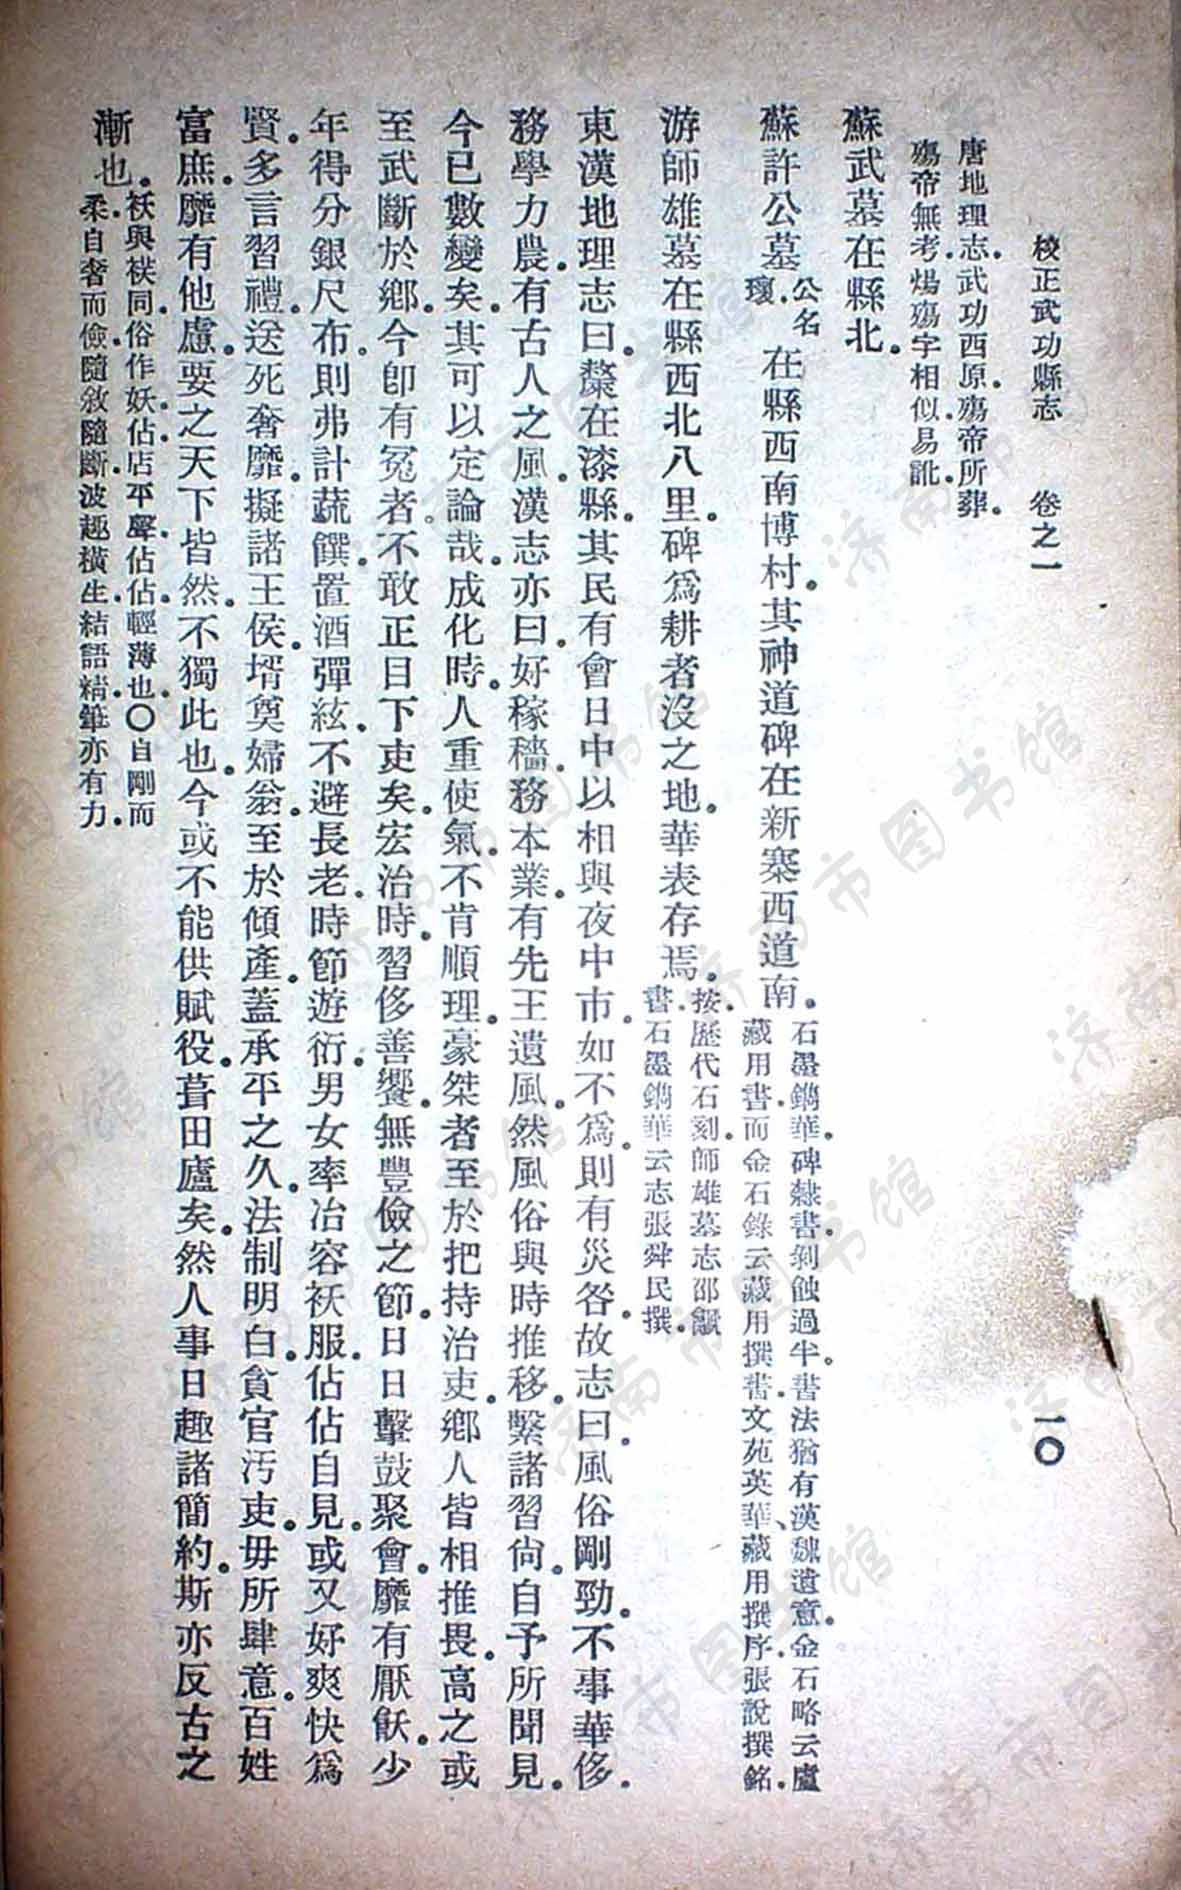 校正武功縣志　卷之一　一〇
唐地理志。武功西原。殤帝所葬。
殤帝無考。煬殤字相似易訛。
蘇武墓在縣北。
蘇許公墓公名瓌。在縣西南博村。其神道碑在新寨西道南。石墨鐫華。碑隸書。剝蝕過半。書法猶有漢魏遺意。金石略云。盧
藏用書。而金石錄云。藏用撰書。文苑英華、藏用撰序。張說撰銘。
游師雄墓在縣西北八里。碑爲耕者沒之地。華表存焉。按。歷代石刻。師雄墓志。邵𩜾
書。石墨鐫華云。志張舜民撰。
東漢地理志曰。斄在漆縣。其民有會日中以相與夜中市。如不爲。則有災咎。故志曰。風俗剛勁。不事華侈。
務學力農。有古人之風。漢志亦曰。好稼穡。務本業。有先王遺風。然風俗與時推移。繫諸習尙。自予所聞見。
今已數變矣。其可以定論哉。成化時。人重使氣。不肯順理。豪桀者至於把持治吏。鄉人皆相推畏。高之或
至武斷於鄉。今卽有冤者。不敢正目下吏矣。宏治時。習侈善饗。無豐儉之節。日日擊鼓聚會。靡有厭飫。少
年得分銀尺布。則弗計蔬饌。置酒彈絃。不避長老。時節遊衍。男女率冶容祅服。佔佔自見。或又好爽快爲
賢。多言習禮。送死奢靡。擬諸王侯。壻奠婦翁。至於傾產。蓋承平之久。法制明白。貪官汚吏。毋所肆意。百姓
富庶。靡有他慮。要之天下皆然。不獨此也。今或不能供賦役。葺田廬矣。然人事日趣諸簡約。斯亦反古之
漸也。祅與祆同。俗作妖。佔店平聲。佔佔。輕薄也。〇自剛而
柔。自奢而儉。隨敘隨斷。波趣橫生。結語精華。亦有力。